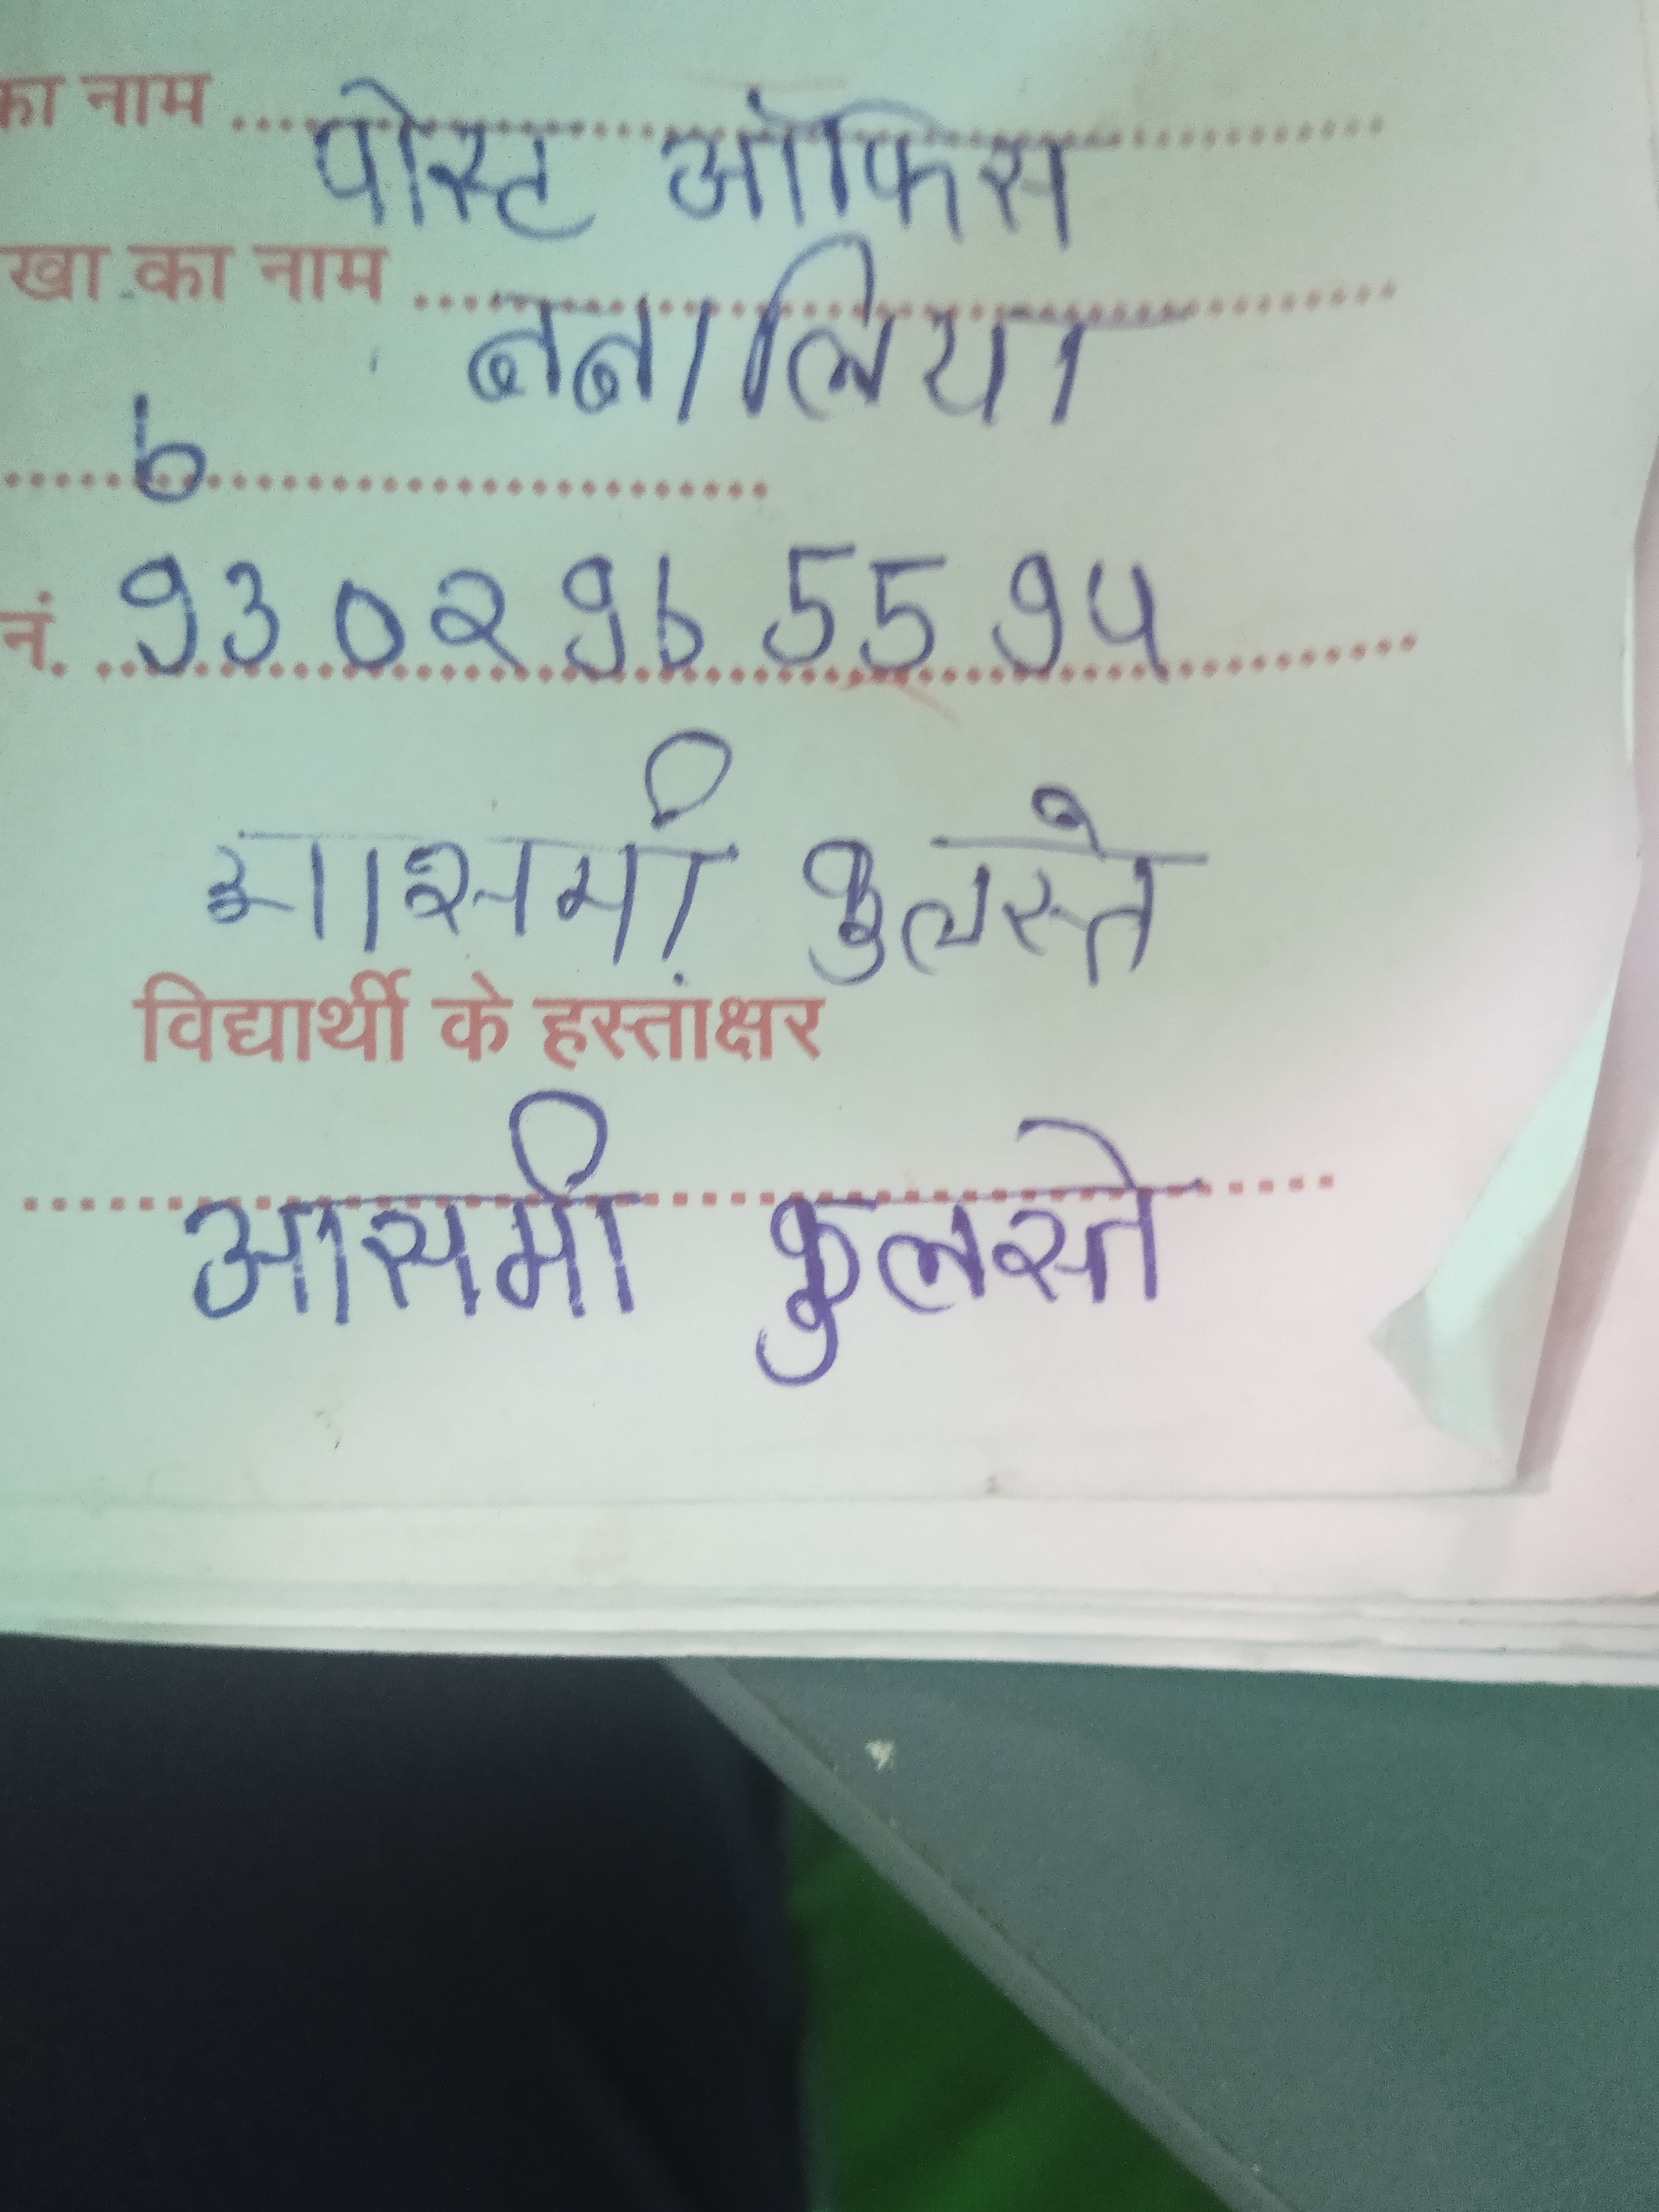 का नाम ........ पोस्ट ऑफिस
खा का नाम ........ बबालिया
........ 6 ........
नं. 9302965594
आसमी कुलस्ते
विद्यार्थी के हस्ताक्षर
आसमी कुलस्ते